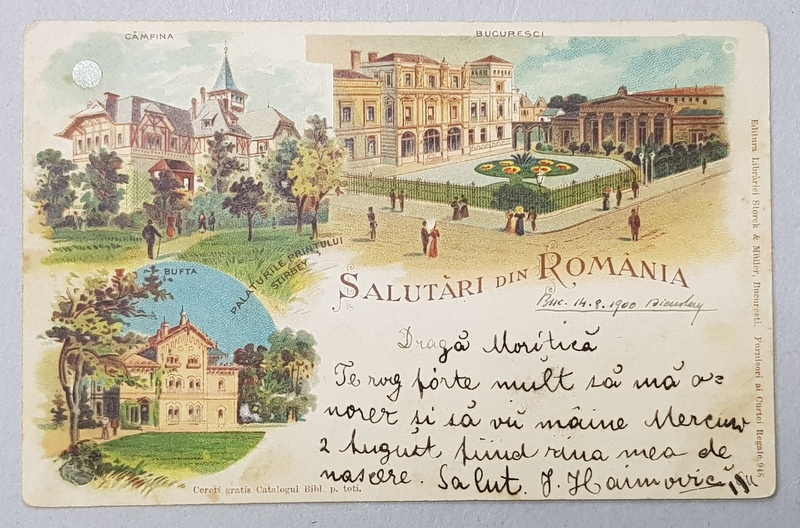 CÂMPINA
BUCURESCI
BUFTA
PALATURILE PRINȚULUI
STIRBEY
SALUTĂRI DIN ROMÂNIA
Buc. 14.8.1900
Dragă Morițică
Te rog fórte mult să mă o=
norez și să vii mâine Mercuri
2 August fiind ziua mea de
nascere. Salut. J. Haimovică
Cereti gratis Catalogul Bibl. p. toti.
Editura Librăriei Storck & Müller, Bucuresti. Furnisori ai Curtei Regale, 948